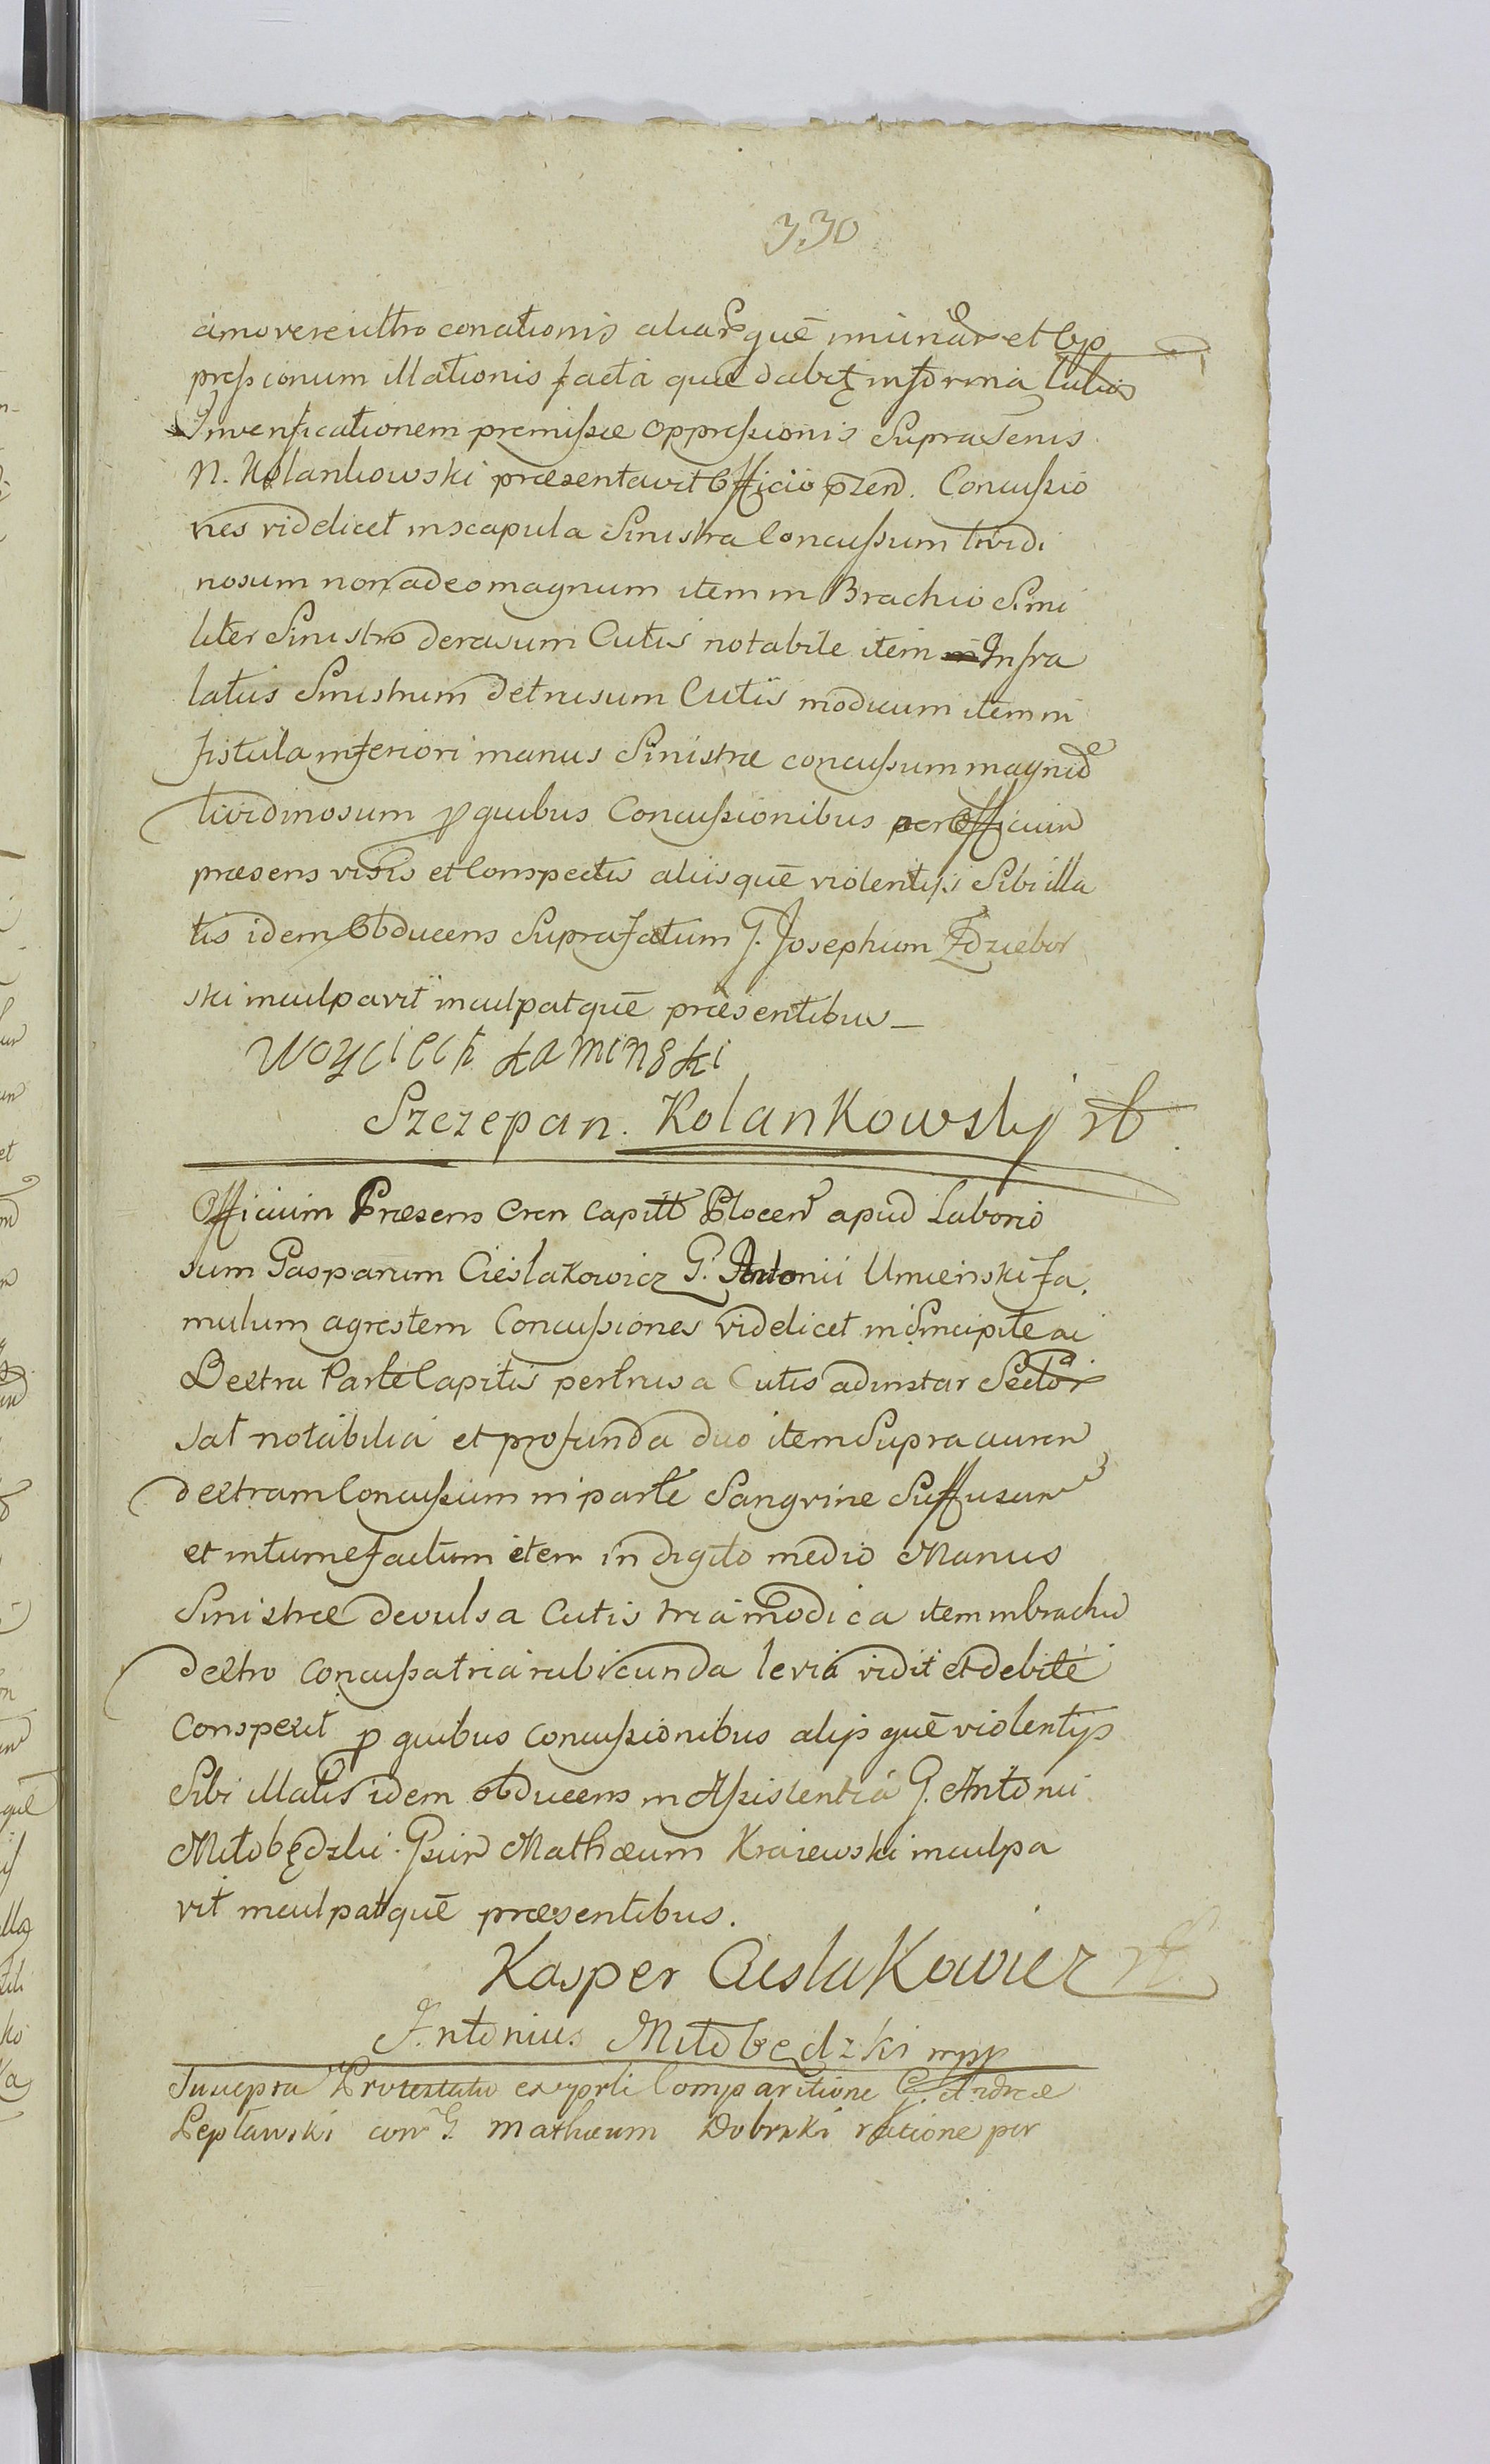 330
amovere ultro conationis aliarquē iniuriar et Op
pressionum illationis facta quæ dabit in forma latius
In verificationem premissæ oppressionis Supra Senis
N. Kolankowski præsentavit Officio pzen. Concussio
nes videlicet in scapula Sinistra Concussum lividi
nosum non adeo magnum item in Brachio Simi
liter Sinistro derasum Cutis notabile item Infra
latus Sinistrum detrusum Cutis modicum item in
fistula inferiori manus Sinistræ concussum magnū
lividinosum p quibus Concussionibus per Officium
præsens visis et Conspectis aliisquē violentijs Sibi illa
tis idem Obducens Suprafatum G. Josephum Zdziebor
ski inculpavit inculpatquē præsentibus
Woyciech Kaminski
Szczepan. Kolankowsky
Officium Præsens Cren Capitt Plocen apud Laborio
sum Gasparum Cieslakowicz G. Antonii Umienski fa,
mulum agrestem Concussiones videlicet in Sincipite ac
Dextra Parte Capitis pertrusa Cutis ad instar Sector
sat notabilia et profunda duo item Supra aurem
dextram Concussum in parte Sangvine Suffusum
et intumefactum item in digito medio Manus
Sinistræ devulsa Cutis tria modica item in brachio
dextro Concussa tria rubicunda levia vidit et debite
Conspexit p quibus Concussionibus alijs quē violentijs
Sibi illatis idem obducens in Assistentia G. Antonii
Miłobędzki Gsum Mathæum Kraiewski inculpa
vit inculpatquē præsentibus.
Kasper CieslaKowicz
Antonius Miłobędzki mpp
Suscepta Protestatio ex prsli Comparitione G. Andreæ
Lepławski con G. Mathæum Dobrski ratione per